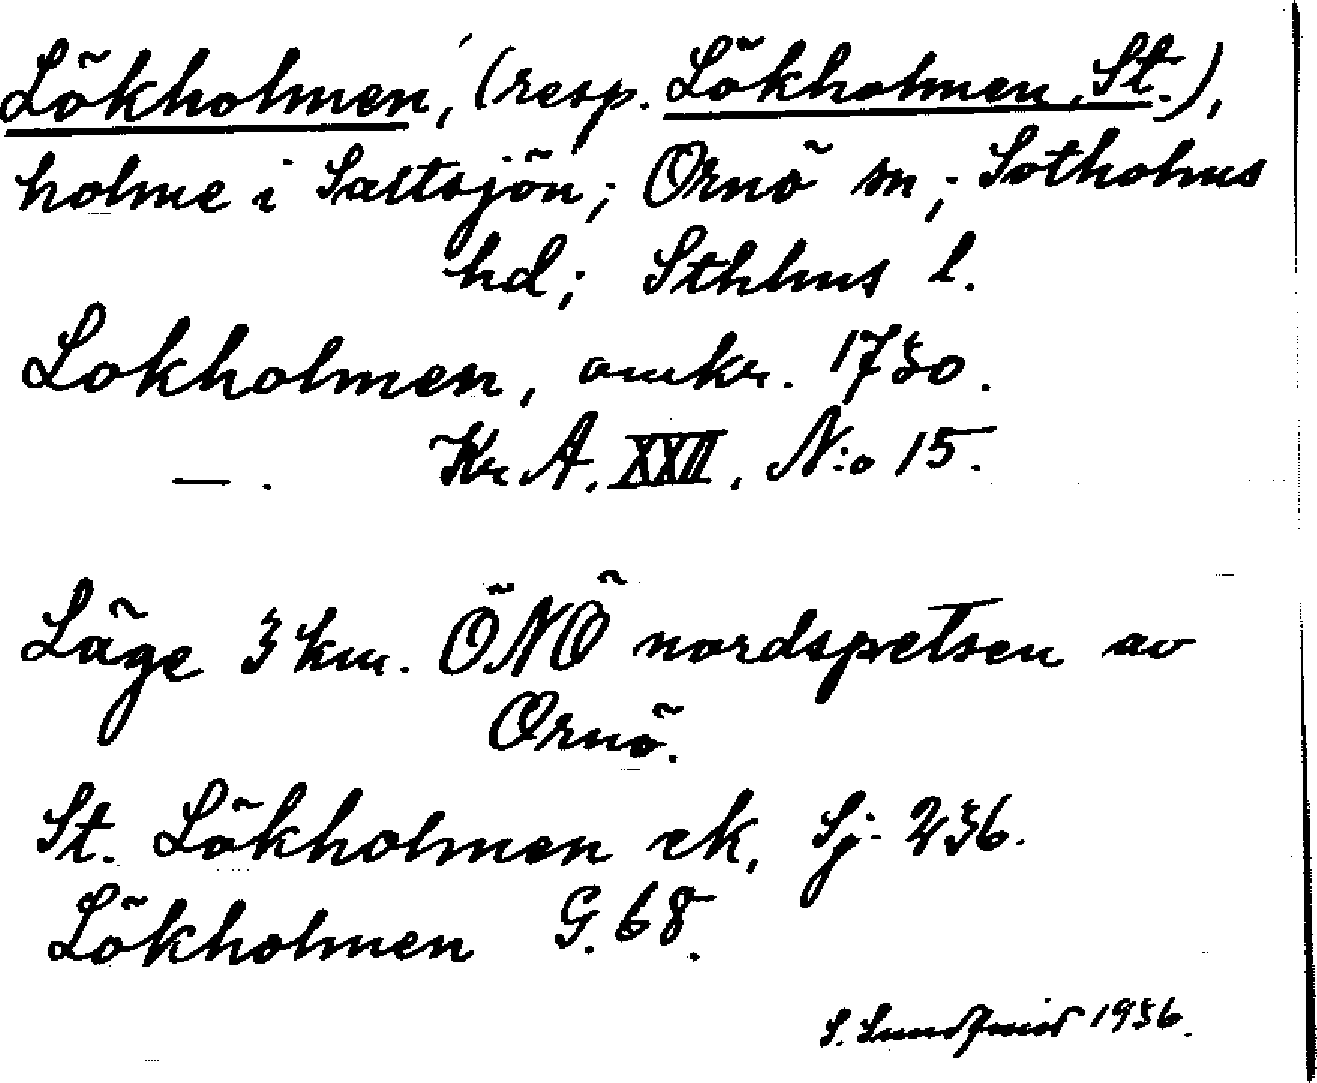 Lökholmen, (resp. Lökholmen, St.),
holme i Saltsjön; Ornö sn; Sotholms
hd; Sthlms l.
Lokholmen, omkr. 1730.
—. Kr. A. XXII, N:o 15.
Läge 3 km. ÖNÖ nordspetsen av
Ornö.
St. Lökholmen ek, Sj. 236.
Lökholmen G. 68.
S. 1936.